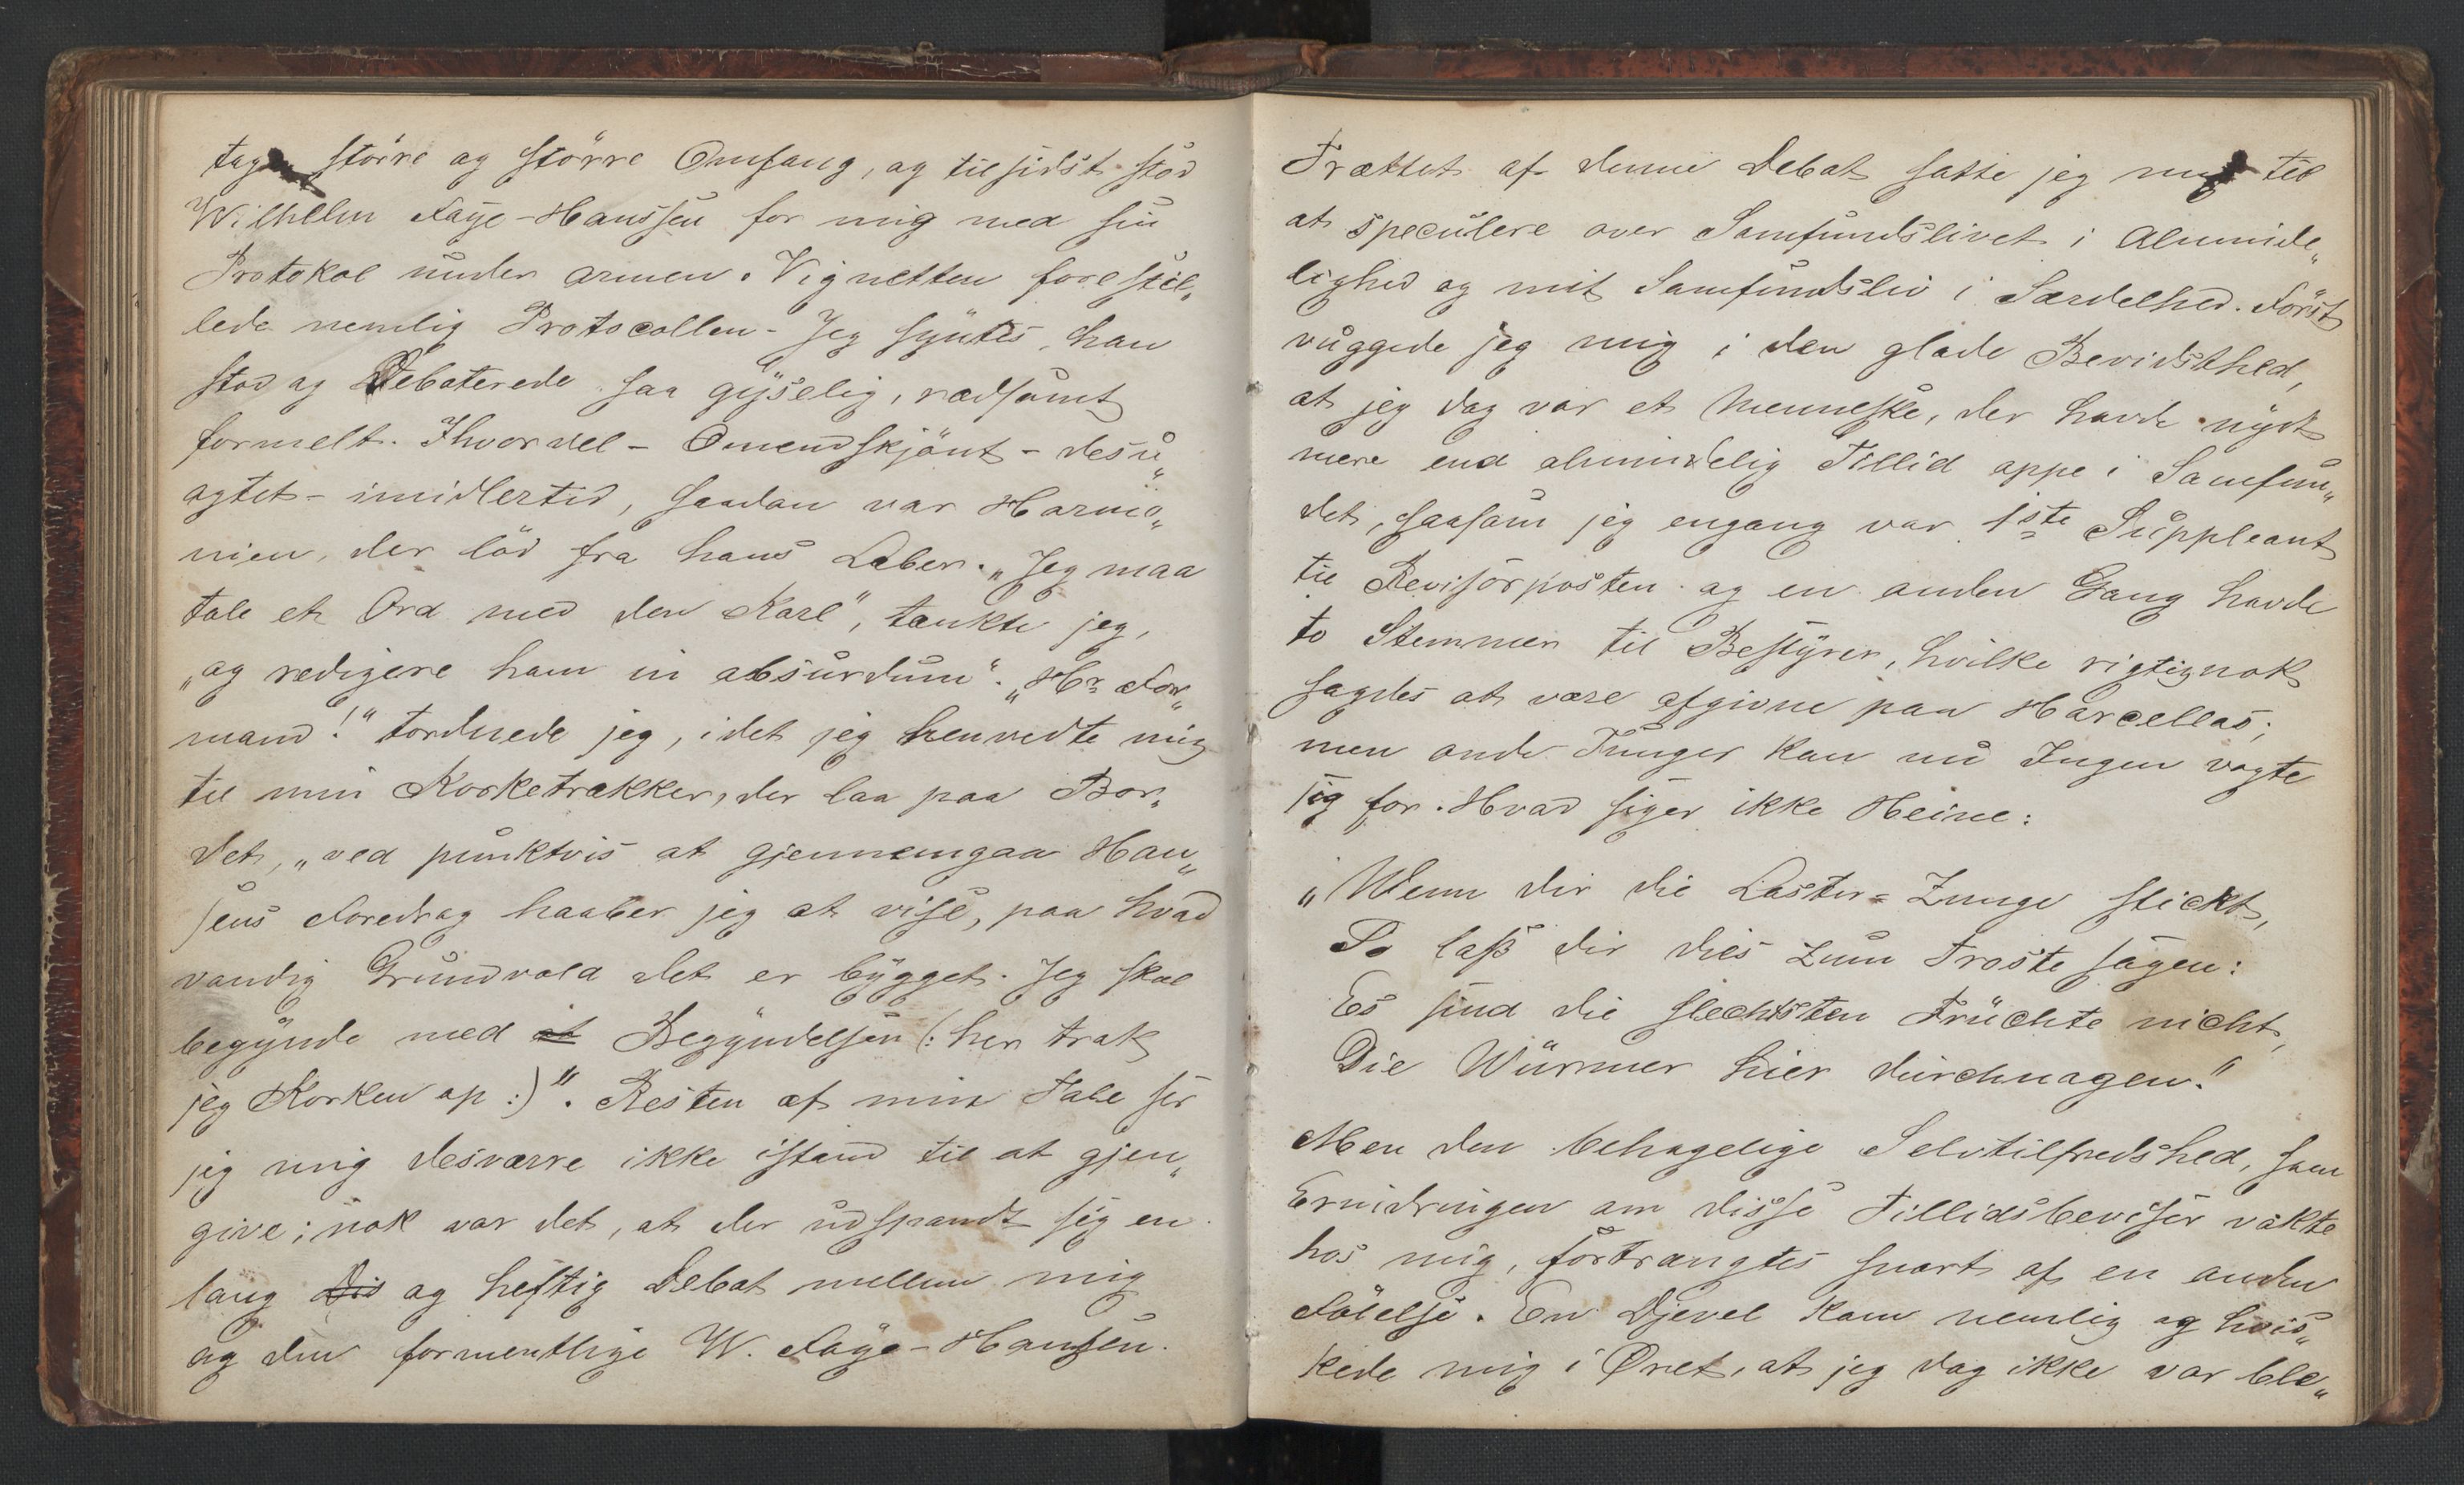 tage större og större Omfang, og tilsidst stod
Wilhelm Faye-Hanssen for mig med sin
Protokol under Armen. Vignetten forestil„
lede nemlig Protocollen - Jeg syntes, han
stod og Debaterede saa gyselig, rædsomt
formelt. Ihvorvel - Omendskjönt - desu„
agtet - imidlertid, saadan var Harmo„
nien, der löd fra hans Læber. „Jeg maa
tale et Ord med den Karl", tænkte jeg,
„og redigere ham in absurdum". „Hr For„
mand!" tordnede jeg, idet jeg henvedte mig
til min Korketrækker, der laa paa Bor„
det, „ved punktvis at gjennemgaa Han„
sens Foredrag haaber jeg at vise, paa hvad
vandig Grundvold det er bygget. Jeg skal
begynde med at Begyndelsen (: her trak
jeg Korken op :)". Resten af min Tale ser
jeg mig desværre ikke istand til at gjen„
give; nok var det, at der udspandt sig en
lang Dis og heftig Debat mellem mig
og den formentlige W. Faye-Hansen.
Trættet af denne Debat satte jeg mig til
at speculere over Samfundslivet i Alminde„
lighed og mit Samfundsliv i Særdelhed. Först
vuggede jeg mig i den glade Bevidsthed,
at jeg dog var et Menneske, der havde nydt
mere end almindelig Tillid oppe i Samfun„
det, saasom jeg engang var 1ste Suppleant
til Revisorposten og en anden Gang havde
to Stemmer til Bestyrer, hvilke rigtignok
sagdes at være afgivne paa Harcellas;
men onde Tunger kan nu Ingen vogte
sig for. Hvad siger ikke Heine:
„Wenn dir die Laster-Zunge stickt,
So laß dir dies zum Troste sagen:
Es sind die slechtsten Früchte nicht,
Die Würmer hier durchnagen."
Men den behagelige Selvtilfredshed, som
Erindringen om disse Tillidsbeviser vakte
hos mig, fortrængtes snart af en anden
Fölelse. En Djevel kom nemlig og hvis„
kede mig i Øret, at jeg dog ikke var ble„